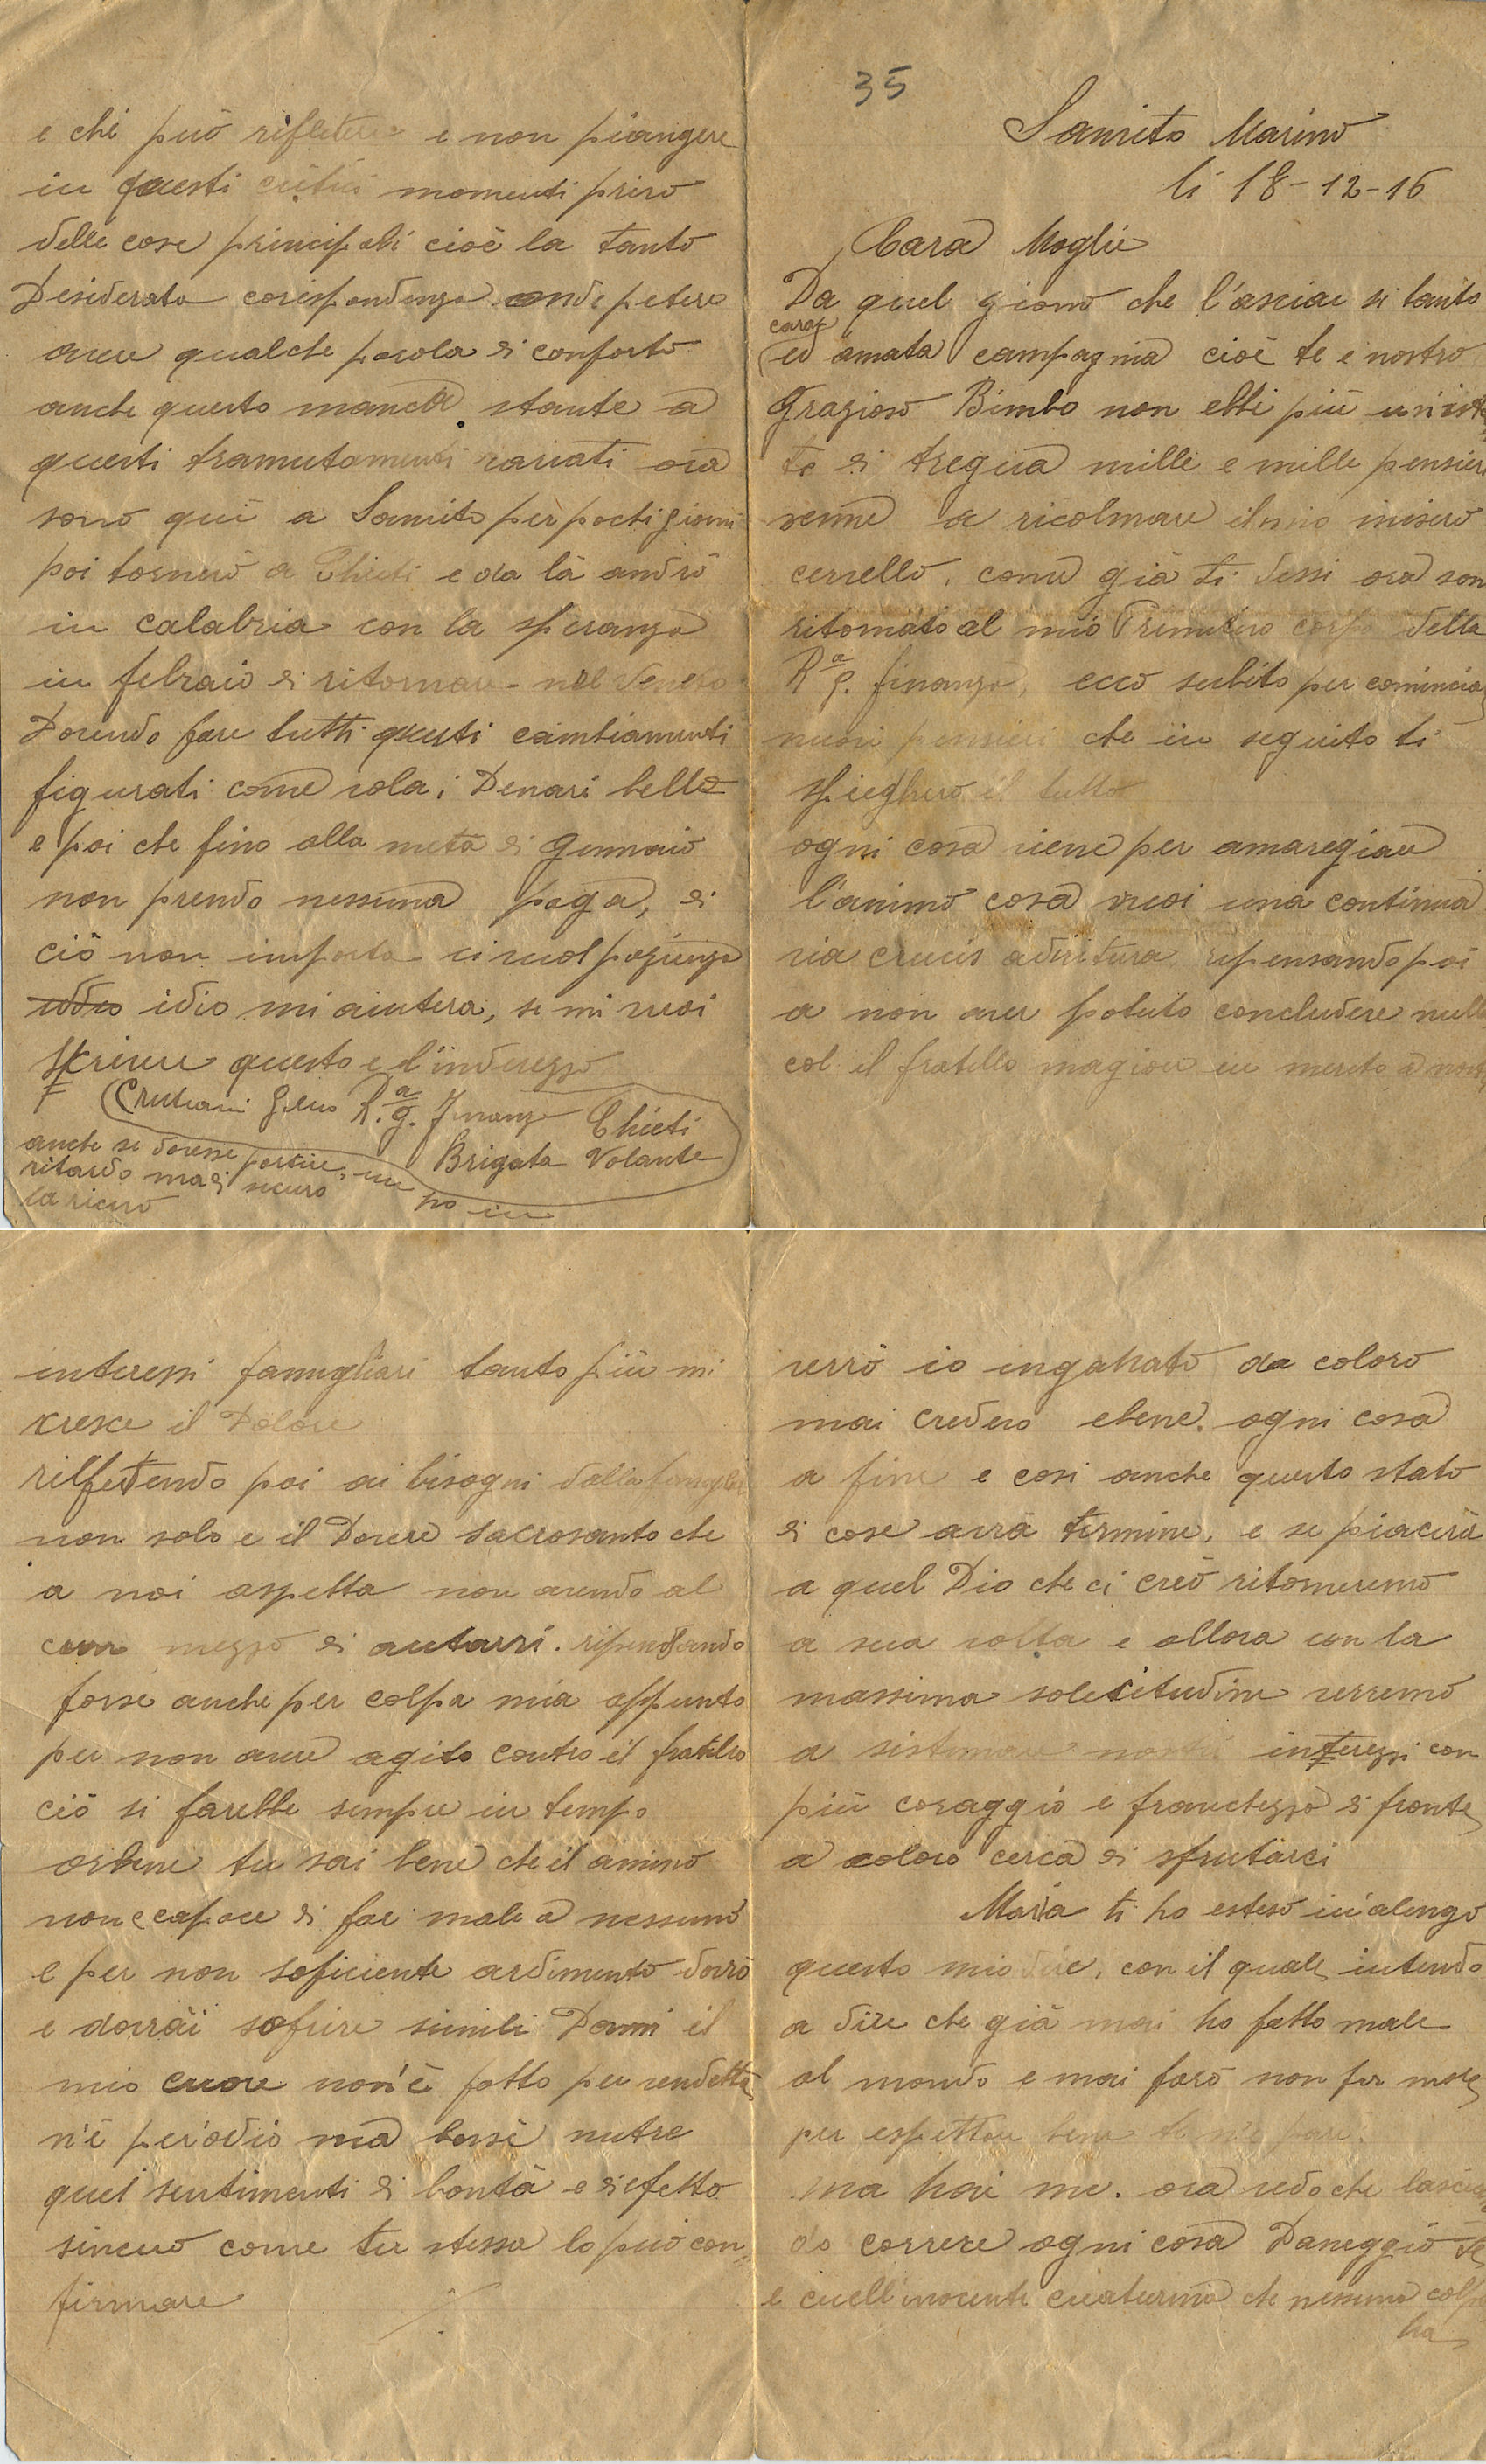 35
Sanvito Marino
li 18-12-16
Cara Moglie
Da quel giorno che l'asciai si tanto
cara
ed amata campagnia cioè te e nostro
Grazioso Bimbo non ebbi più un'istan
te di tregua mille e mille pensieri
venne a ricolmare il mio misero
cervello, come già ti dessi ora son
ritornato al mio Primitivo corpo della
R.a g. finanza, ecco subito per cominciar
nuovi pensieri che in seguito ti
spieghero il tutto
ogni cosa viene per amaregiare
l'animo cosa vuoi una continua
via crucis adiritura ripensando poi
a non aver potuto concludere nulla
col il fratello magiore in merito a nostri
interessi famigliari tanto più mi
cresce il Dolore
rilfetendo poi ai bisogni della famiglia
non solo e il Dovere sacrosanto che
a noi aspetta non avendo al
cun mezzo di aiutarvi. ripensando
forse anche per colpa mia appunto
per non avere agito contro il fratello
ciò si farebbe sempre in tempo
orbene tu sai bene che il animo
non e capace di far male a nessuno
e per non soficiente ardimento dovrò
e dovrai sofrire simili Danni il
mio cuore non'è fatto per vendetta
n'è per'odio ma bensì nutre
quei sentimenti di bontà e di efetto
sincero come tu stessa lo può con,,
firmare
verrò io ingahato da coloro
mai credevo ebene. ogni cosa
a fine e cosi anche questo stato
di cose avrà termine, e se piacerà
a quel Dio che ci creò ritorneremo
a sua volta e allora con la
massima solecitudine verremo
a sistemare nostri interezzi con
più coraggio e franchezza di fronte
a coloro cerca di sfrutarci
Maria ti ho esteso in'alungo
questo mio dire, con il quale intendo
a dire che già mai ho fatto male
al mondo e mai farò non far male
per espettare bene
ma hai me. ora vedo che lascian
do correre ogni cosa Daneggiò te
e cuell inocente creaturina che nessuna colpa
ha
e chi può rifletere e non piangere
in questi critici momenti privo
delle cose principali cioè la tanto
Desiderata corispondenza onde potere
avere qualche parola di conforto
anche questo manca stante a
questi tramutamenti variati ora
sono qui a Sanvito per pochi giorni
poi tornerò a Chieti e da là andrò
in calabria con la speranza
in febraio di ritornare nel Veneto
Dovendo fare tutti questi cambiamenti
figurati come vola i Denari bello
e poi che fino alla metà di Gennaio
non prendo nessuna paga, di
ciò non importa ci vuol pazienza
iddio idio mi aiutera, se mi vuoi
scrivere questo e l'inderezzo
Crutiani R.a g. Finanza Chieti
Brigata Volante
anche se dovesse partire, un po in
ritardo ma di sicuro
la ricevo